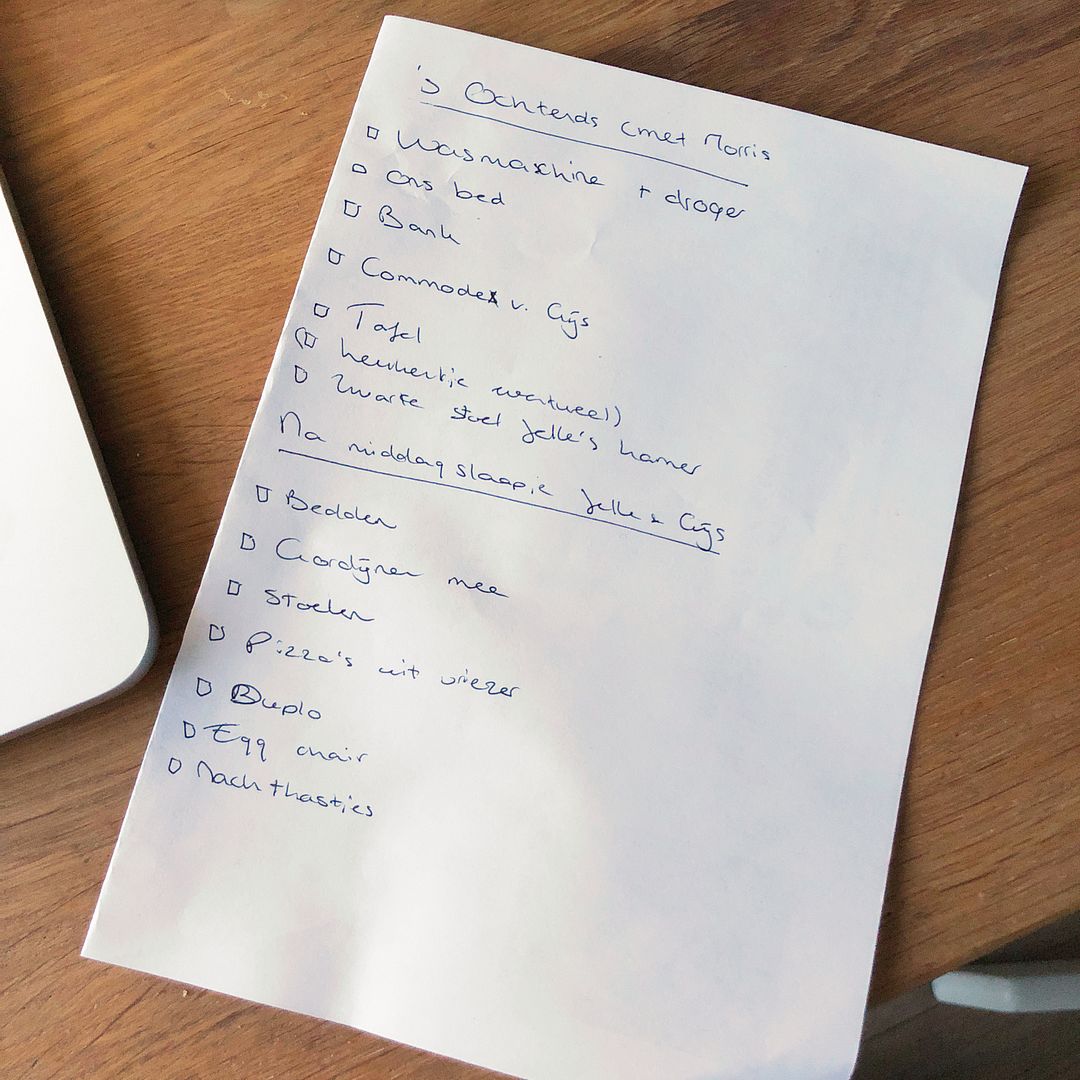 's Ochtends (met Morris
Wasmaschine + droger
Ons bed
Bank
Commode v. Gijs
Tafel
(keukentje eventueel)
Zwarte stoel Jelle's kamer
Na middagslaapje Jelle & Gijs
Bedden
Gordijnen mee
Stoelen
Pizza's uit vriezer
Duplo
Egg chair
Nachtkastjes